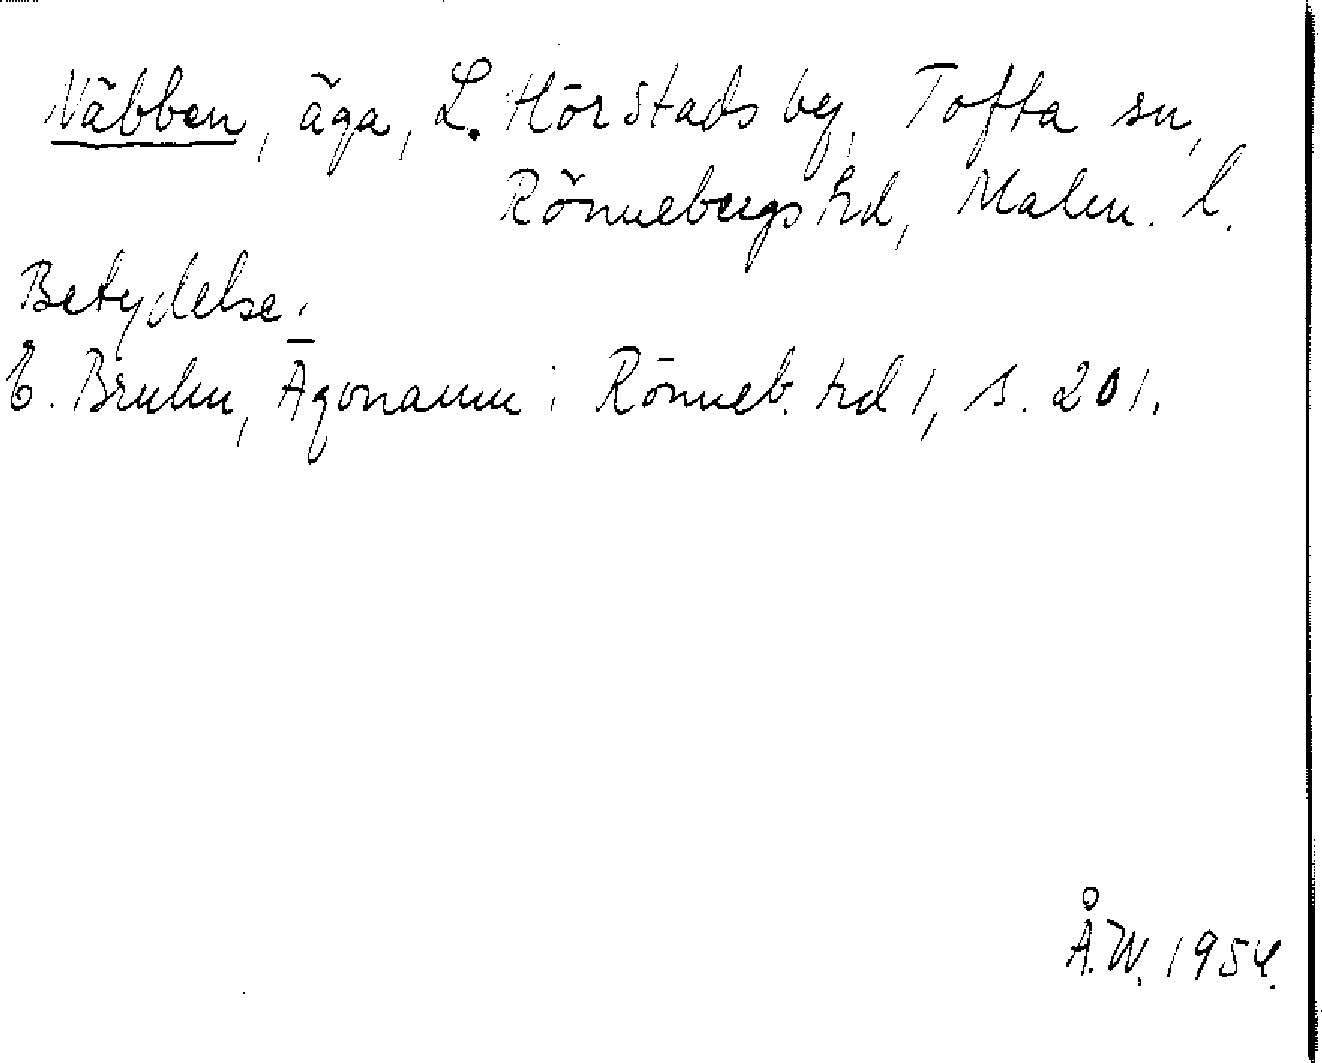 Näbben, äga, L. Hörstads by, Tofta sn,
Rönnebergs hd, Malm. l.
Betydelse.
E. Bruhn, Ägonamn i Rönneb. hd 1, s. 201.
Å.W. 1954.